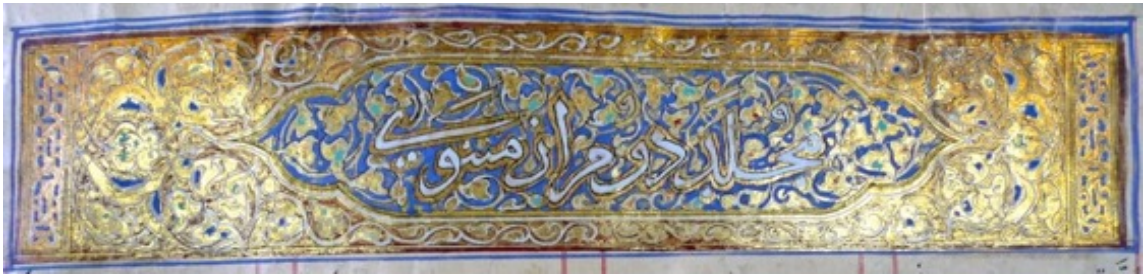 مجلد دوم از مثنوي